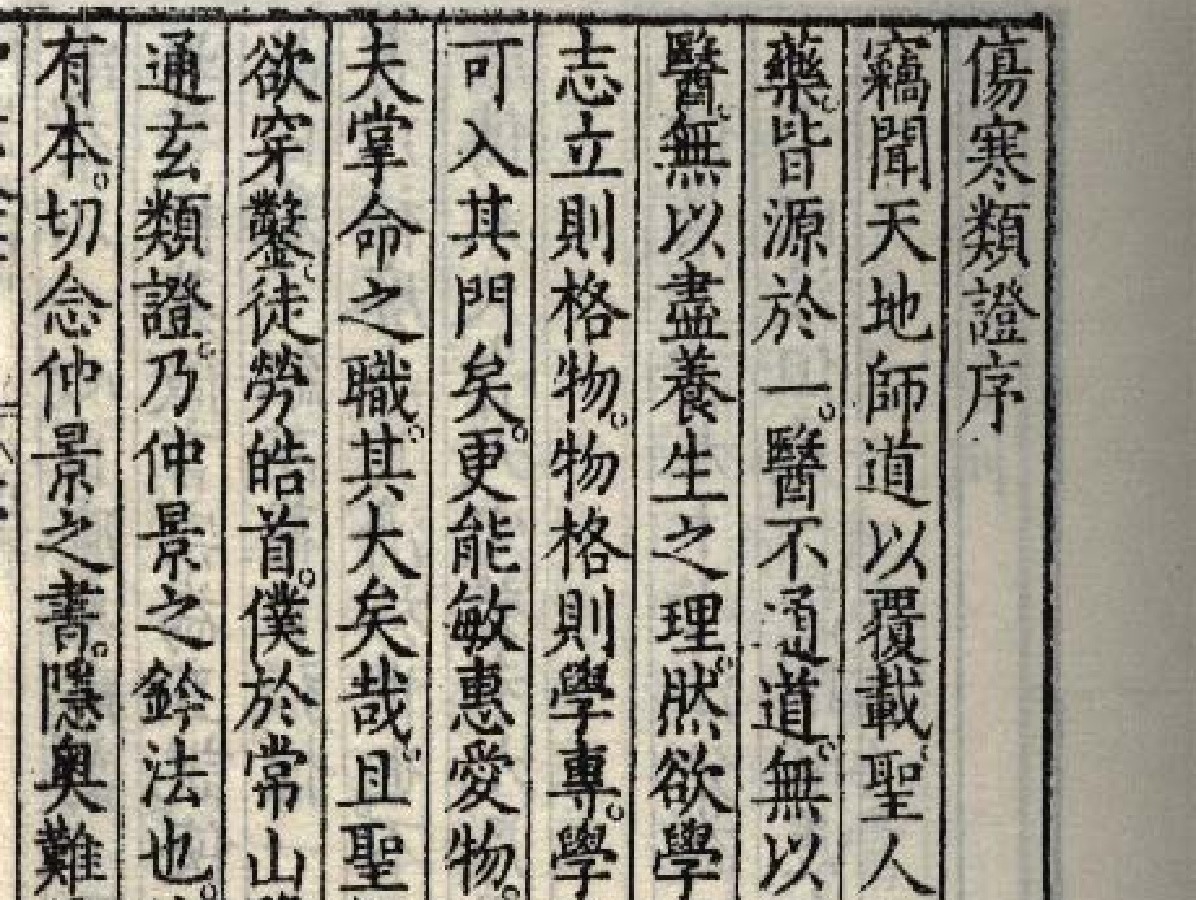 傷寒類證序
竊聞天地師道以覆載聖人
藥皆源於一醫不通道無以
醫無以盡養生之理然欲學
志立則格物物格則學專學
可入其門矣更能敏惠愛物
夫掌命之職其大矣哉且聖
欲穿鑿徒勞皓首僕於常山
通玄類證乃仲景之鈐法也
有本切念仲景之書隱奧難